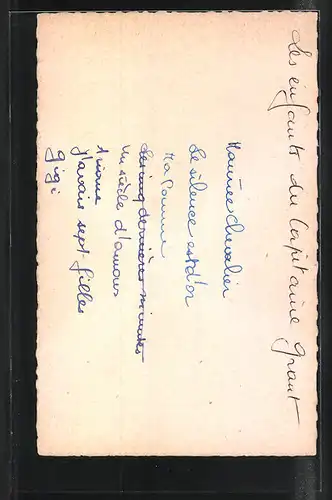 Les enfants du Capitaine Grant
Maurice Chevalier
Le silence est d'or
Ma Pomme
Les cinq dernières minutes
Un siècle d'amour
Ariane
J'avais sept filles
Gigi